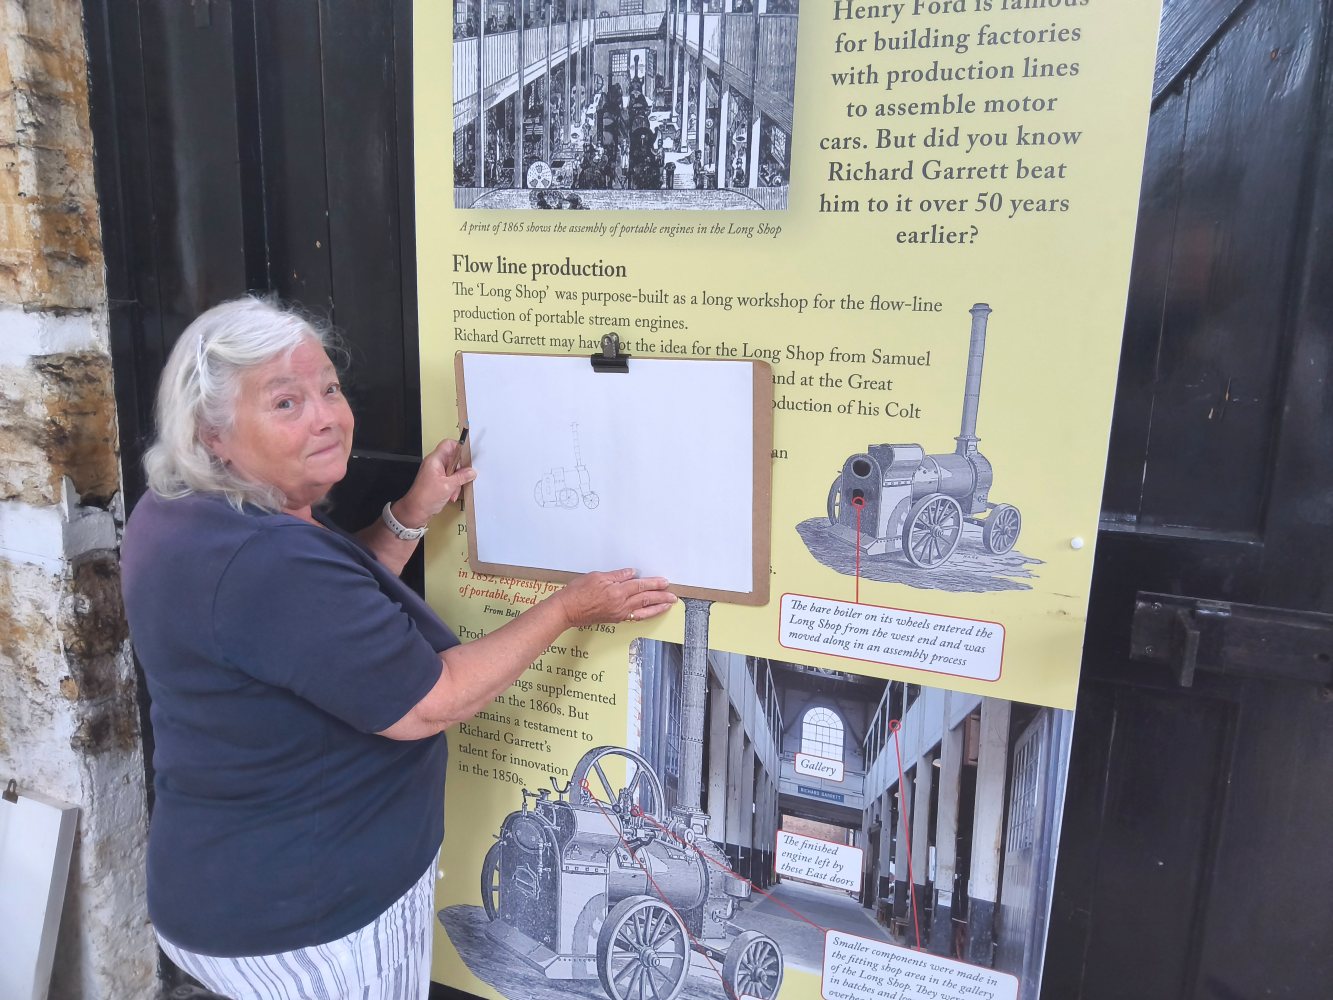 Henry Ford is famous
for building factories
with production lines
to assemble motor
cars. But did you know
Richard Garrett beat
him to it over 50 years
earlier?
A print of 1865 shows the assembly of portable engines in the Long Shop
Flow line production
The ‘Long Shop’ was purpose-built as a long workshop for the flow-line
production of portable stream engines.
Richard Garrett may have got the idea for the Long Shop from Samuel
and at the Great
oduction of his Colt
an
in 1852, expressly for
of portable, fixed
From Bell
ger, 1863
grew the
nd a range of
ngs supplemented
in the 1860s. But
remains a testament to
Richard Garrett’s
talent for innovation
in the 1850s.
The bare boiler on its wheels entered the
Long Shop from the west end and was
moved along in an assembly process
Gallery
RICHARD GARRETT
The finished
engine left by
these East doors
Smaller components were made in
the fitting shop area in the gallery
of the Long Shop. They were
in batches and